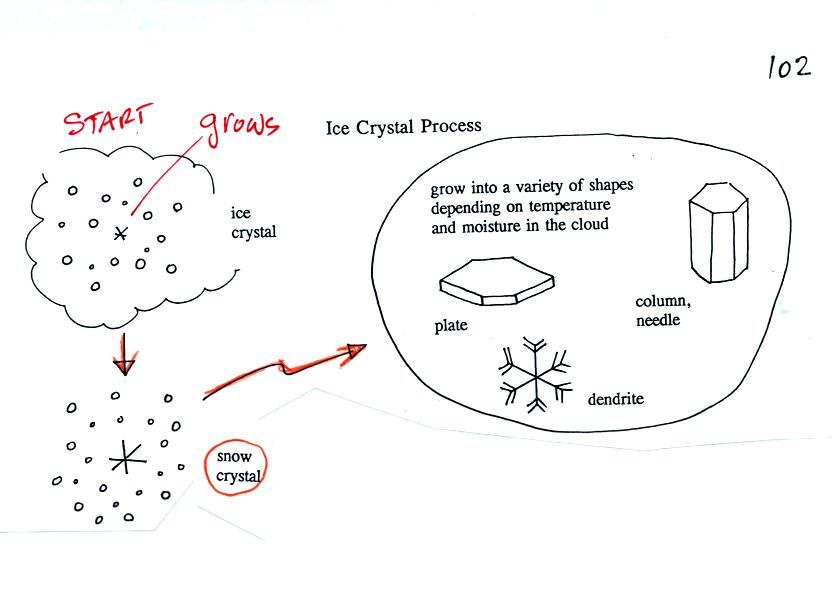 102
START
grows
Ice Crystal Process
ice
crystal
grow into a variety of shapes
depending on temperature
and moisture in the cloud
column,
needle
plate
dendrite
snow
crystal